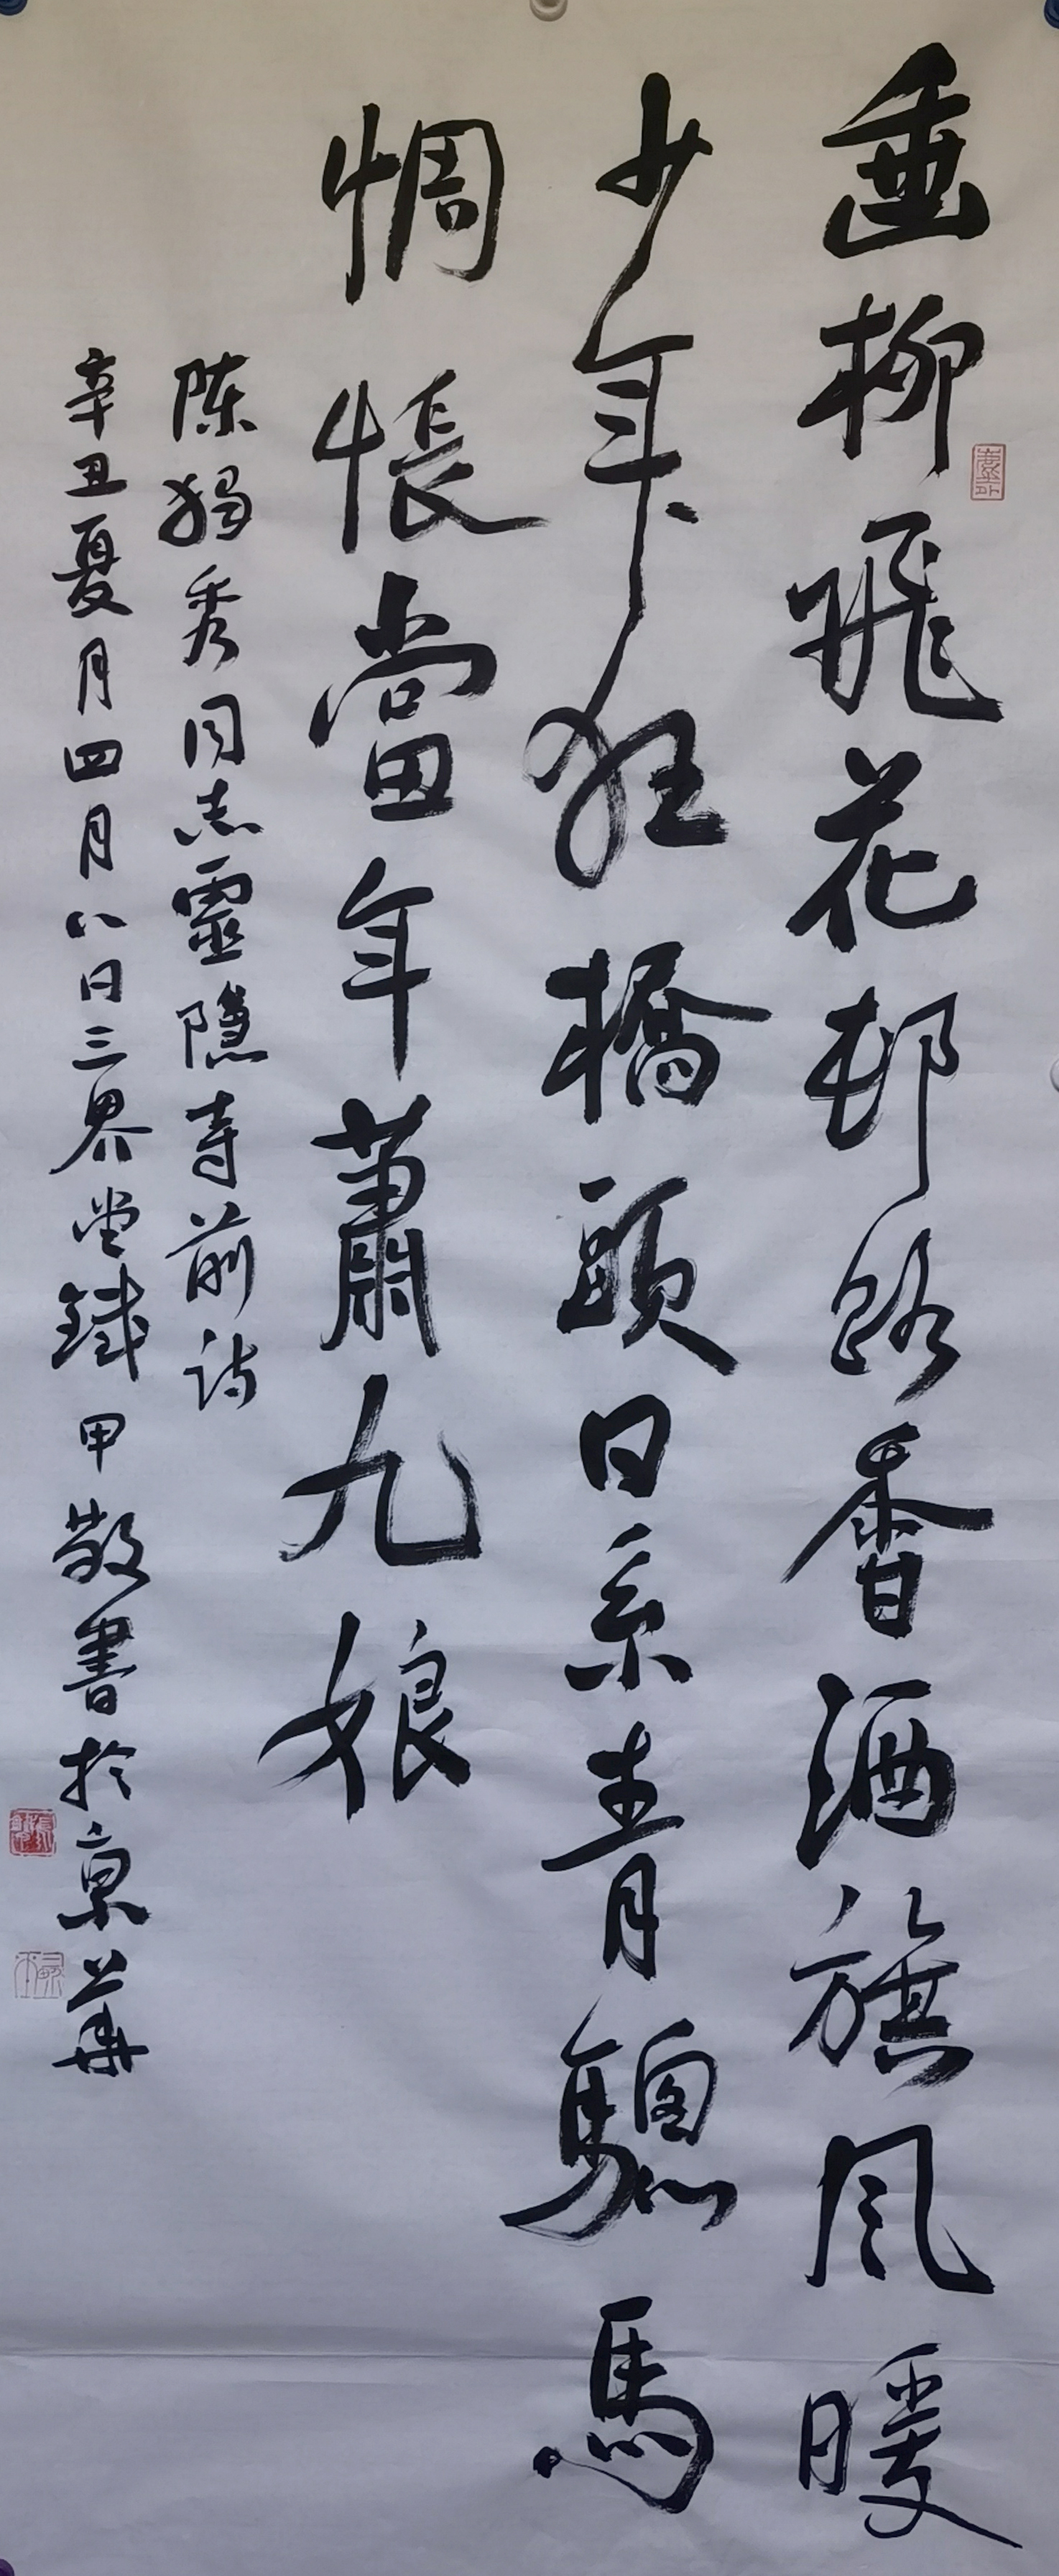 垂柳飛花邨路香酒旗風暖
少年狂橋頭日系青驄馬
惆悵當年蕭九娘
陳獨秀同志靈隱寺前詩
辛丑夏月四月八日三界堂鐵甲敬書於京華